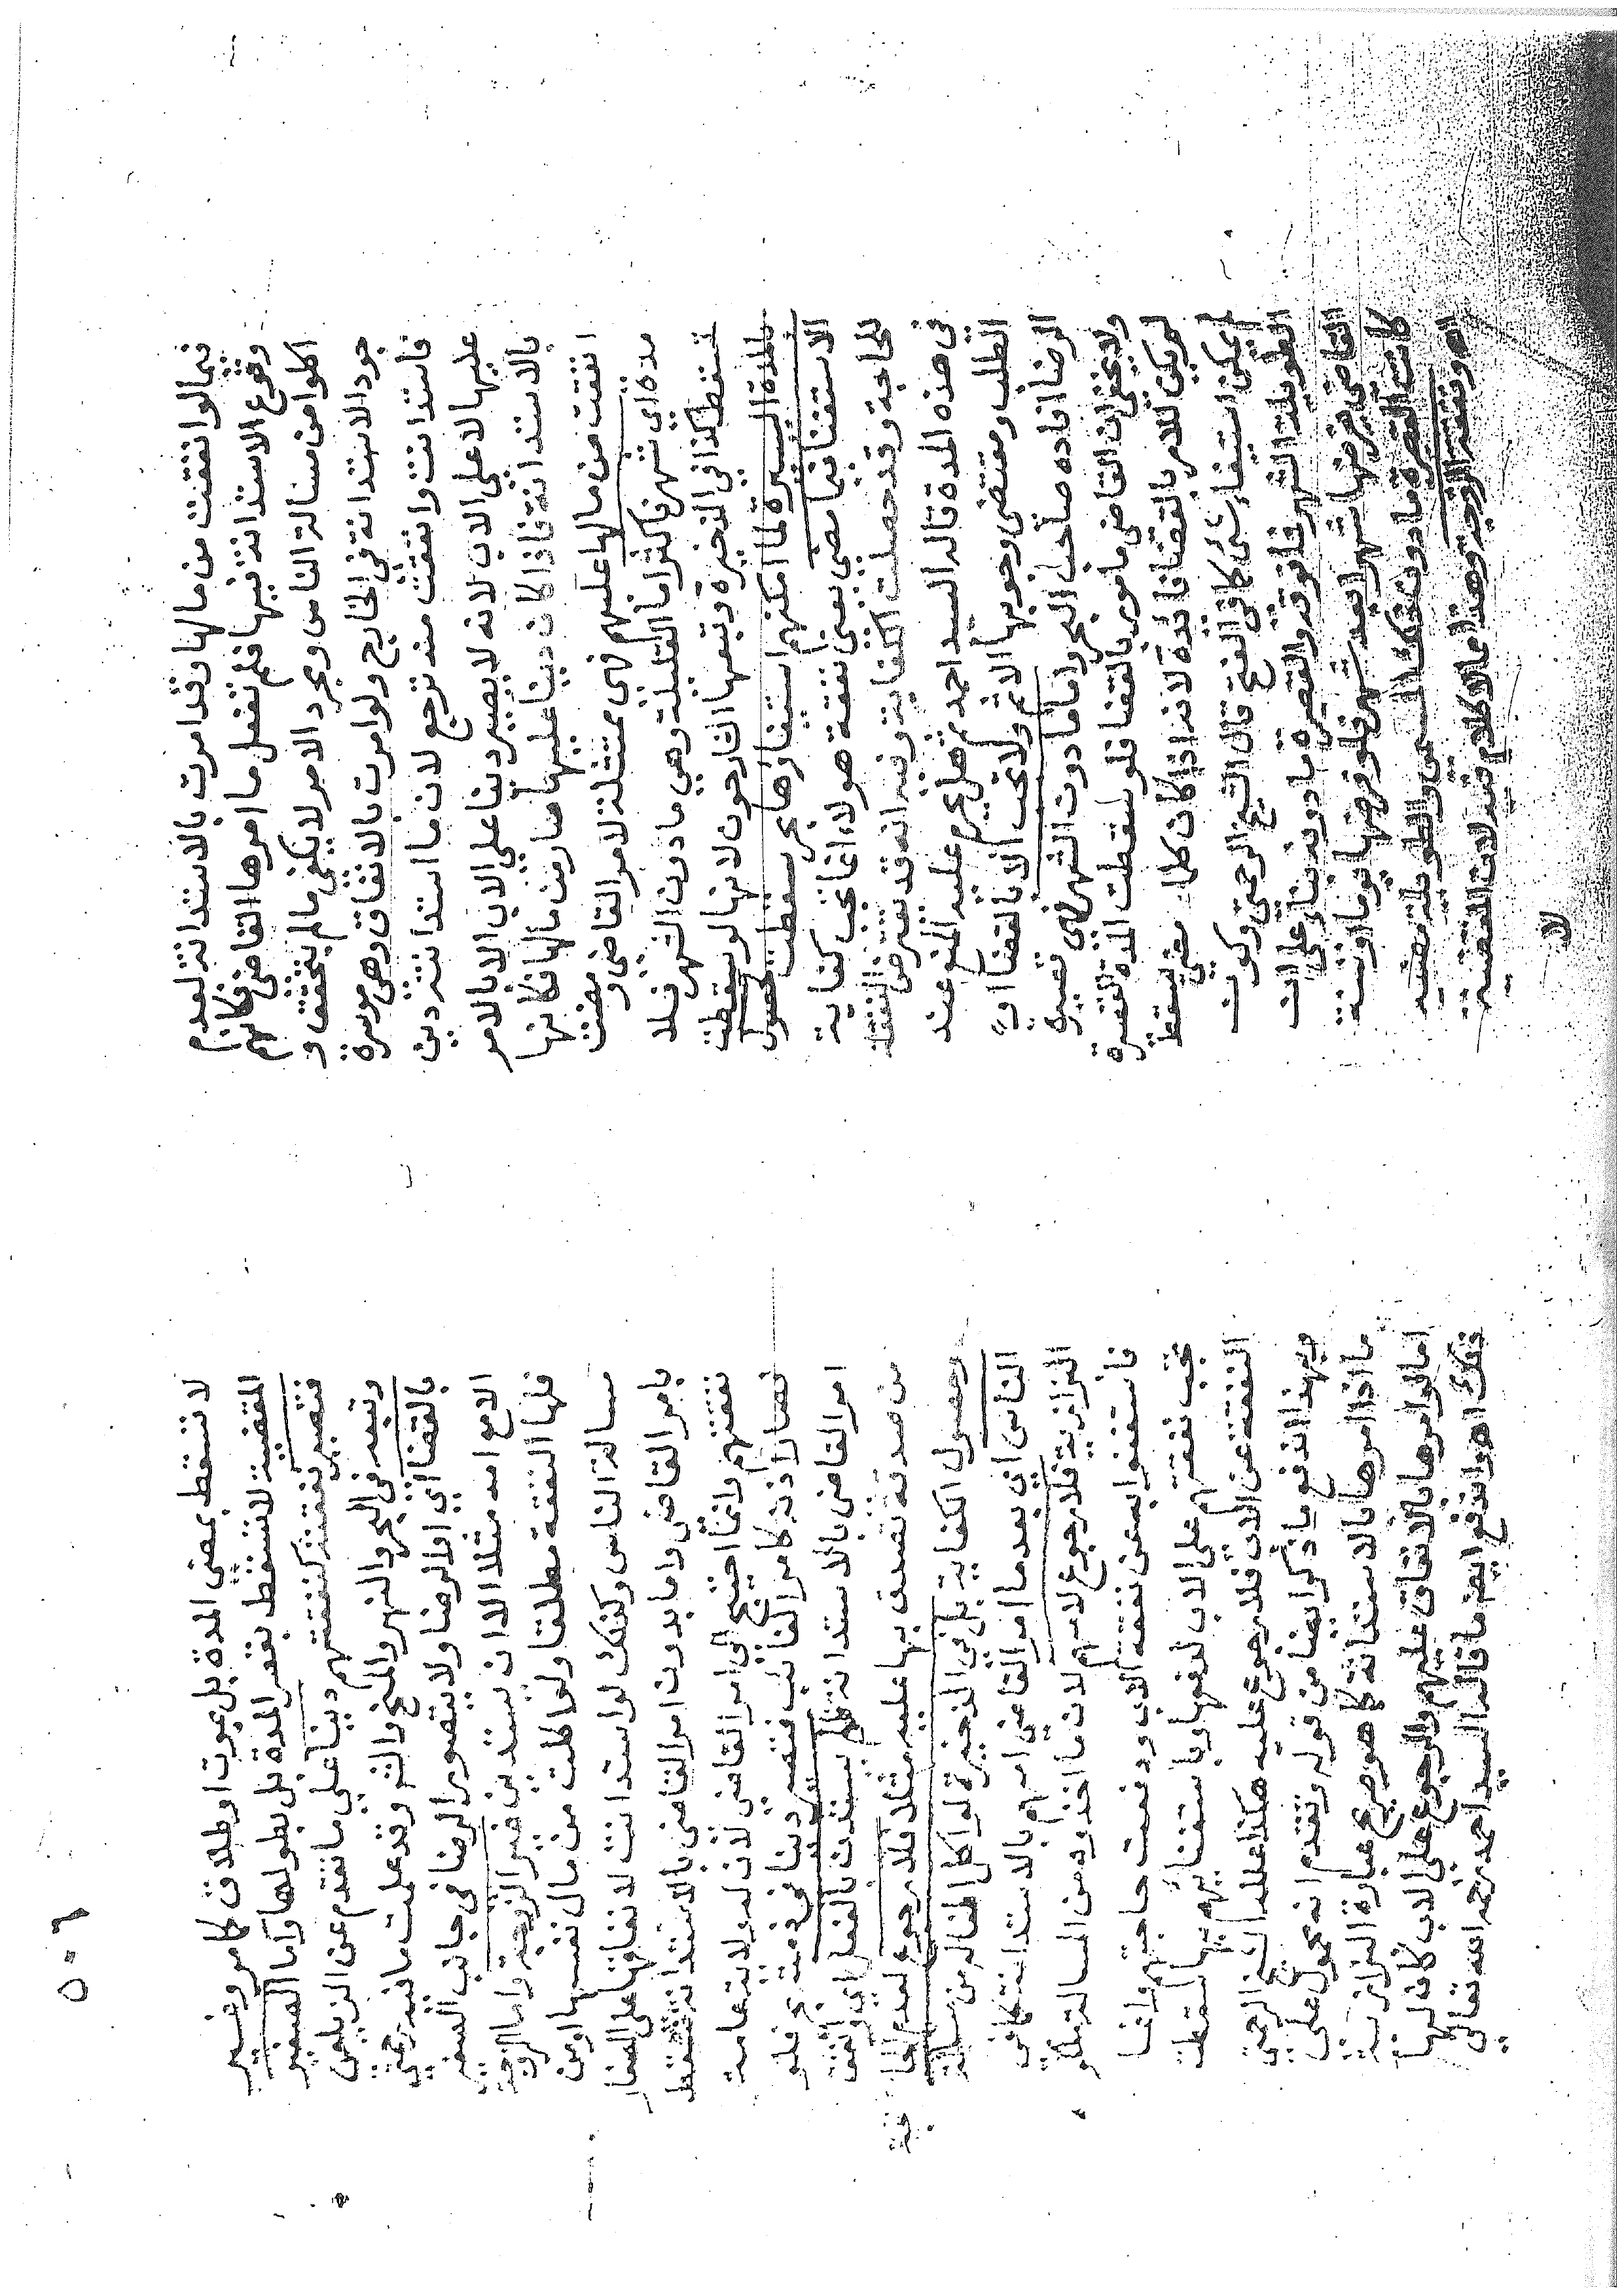 فيما لو انفقت من مالها وقد امرت بالاستدانة لعدم
وقوع الاستدانة فيها فلم تفعل ما امرها القاضي فكانهم
اكلوا من مسالة الناس ومجرد الامر لا يكفي ما لم يتحقق و
جود الاستدانة في الخارج ولو امرت بالانفاق وهي موسرة
فاستدانت وانفقت منه ترجع لان ما استدانته دين
عليها لا على الاب لانه لا يصير دينا على الاب الا بالامر
بالاستدانة فاذا كان دينا عليها صار من مالها فكانها
انفقت من مالها عليهم فهي ممتثلة لامر القاضي ومضت
مدة اي شهر فاكثر اما القليلة وهي ما دون الشهر فلا
تسقط كذا في الذخيرة وتبعها الشارحون لانها لو سقطت
بالمدة اليسيرة لما امكنهم استيفاؤها بحر سقطت لحصول
الاستغنا فيما مضى يعني نفقة هولاء انما تجب كفاية
للحاجة وقد حصلت الكفاية وفيه انه قد يقترض النفقة
في هذه المدة قاله السيد احمد هل يحرم عليه المنع عند
الطلب ومقتضى وجوبها الاثم ولا تجب الا بالقضا او
الرضا افاده صاحب البحر واما ما دون الشهر فهي قصيرة
ولا يخفى ان القاضي مامور بالقضا فلو سقطت المدة القصيرة
لم يكن للامر بالقضا فائدة لانه اذا كان كلما مضى سقط
لم يمكن استيفاء شئ كما في الفتح قال الشيخ الرحمتي وكون
الطويلة الشهر فما فوقه والقصيرة ما دونه بناء على ان
القاضي فرضها شهرا بعد شهر فلو فرضها يوما او سنة
كانت القصيرة ما دون ذلك المسمى والطويلة مضيه
اه ونفقة الزوجية وهذا مما لا كلام فيه لان المقضية
لا
٥٠٦
لا تسقط بمضي المدة بل بموت او طلاق كما مر وغير
المقضية لا تسقط بقصر المدة بل بطولها واما الصغير
فتصير نفقته كنفقتهم دينا على ما تقدم عن الزيلعي
وتبعه في البحر والنهر والمنح والشر وقد علمت ما فيه رحمتي
بالقضا اي او الرضا ولا يتصور الرضا في جانب الصغر
الا مع امه مثلا الا ان يستدين غير الزوجة واما الزوجة
فلها النفقة مطلقا ولو اكلت من مال نفسها او من
مسالة الناس وكذلك لو استدانت لانفاقها على الصغار
بامر القاضي واما بدون امر القاضي بالاستدانة تسقط
نفقتهم وانما احتيج الى امر القاضي لان له ولاية عامة
فصار اذنه كامر الغائب فتصير دينا في ذمته بحر فلو
امر القاضي بالاستدانة فلم يستدن بالفعل اي وانفق
من صدقة تصدق بها عليه مثلا فلا رجوع لعدم الحاجة
وحصول الكفاية بل في الذخيرة لو اكل اطفاله من مسالة
الناس اي بعد ما امر القاضي امهم بالاستدانة كما في
البزازية فلا رجوع لامهم لان ما اخذوه من المسالة ملكهم
فاستغنوا به عن نفقة الاب ودفعت حاجتهم وانما
تجب نفقتهم على الاب لدفعها وباستغنائهم بها سقطت
النفقة عن الاب فلا رجوع عليه هكذا علله الشيخ الرحمتي
وبهذا اندفع ما ذكر ايضا من قوله وتقدم انه محمول على
ما اذا امرها بالاستدانة كما هو صريح عبارة البزازية
اما لو امرها بالانفاق عليهم والرجوع على الاب كان لها
ذلك اهو اندفع ايضا ما قاله السيد احمد رحمه الله تعالى